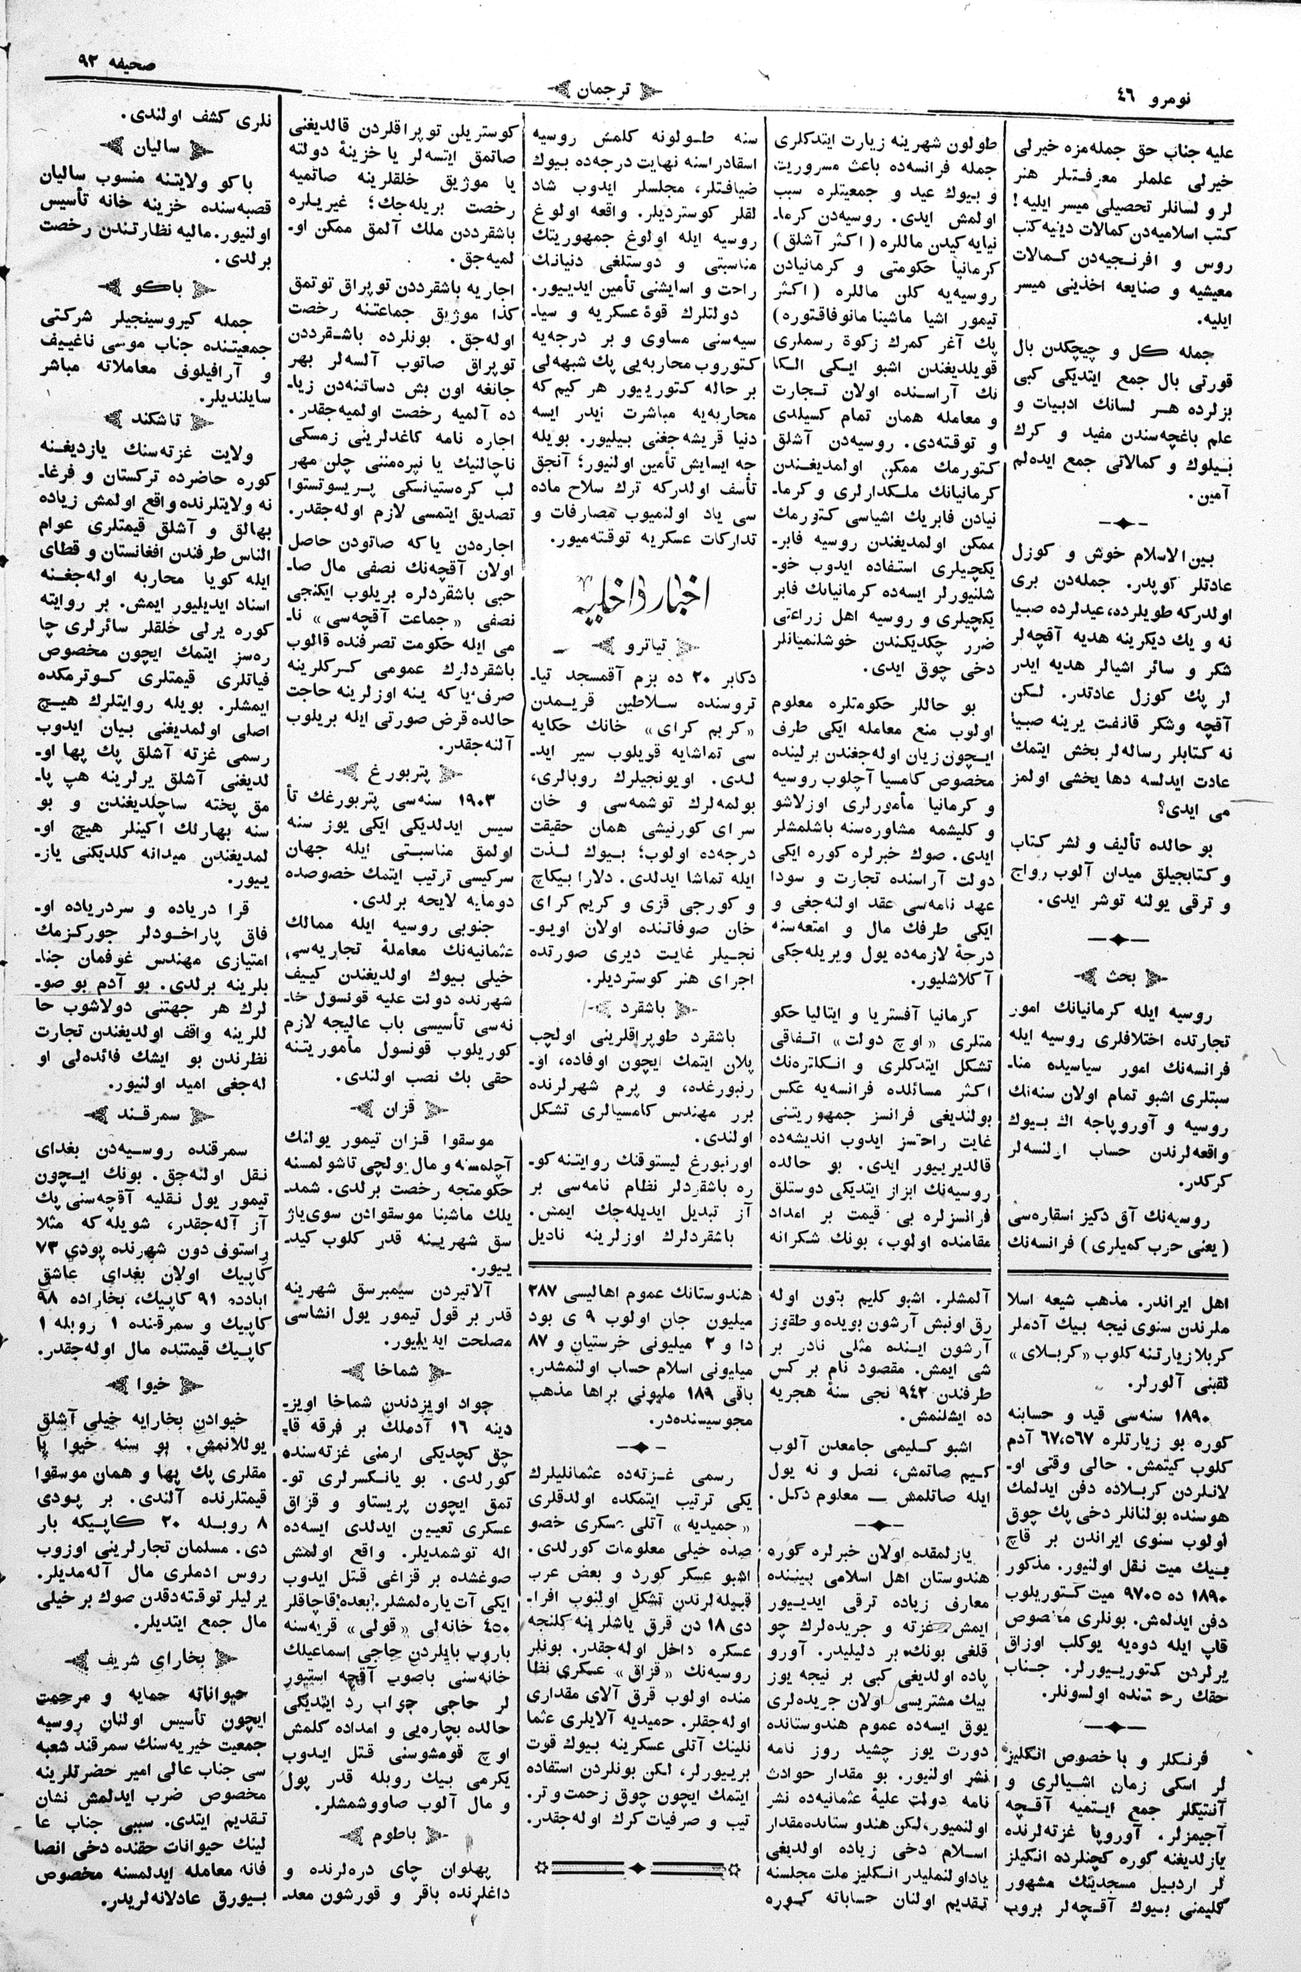 نومرو ٤٦
ترجمان
صحیفه ٩٢
علیه جناب حق جمله‌مزه خیرلی
خیرلی علملر معرفتلر هنر
لر و لسانلر تحصیلی میسر ایلیه!
کتب اسلامیه‌دن کمالات دینیه کتب
روس و افرنجیه‌دن کمالات
معیشیه و صنایعه اخذینی میسر
ایلیه.
جمله کل و چیچکدن بال
قورتی بال جمع ایتدیکی کبی
بزلرده هر لسانك ادبیات و
علم باغچه‌سندن مفید و کرك
بیلوك و کمالاتی جمع ایده‌لم
آمین.
بین الاسلام خوش و کوزل
عادتلر کوپدر. جمله‌دن بری
اولدرکه طویلرده، عیدلرده صبیا
نه و یك دیکرینه هدیه آقچه‌لر
شکر و سائر اشیالر هدیه ایدر
لر پك کوزل عادتدر. لکن
آقچه وشکر قانفت یرینه صبیا
نه کتابلر رساله‌لر بخش ایتمك
عادت ایدلسه دها یخشی اولمز
می ایدی؟
بو حالده تألیف و نشر کتاب
و کتابجیلق میدان آلوب رواج
و ترقی یولنه توشر ایدی.
بحث
روسیه ایله کرمانیانك امور
تجارتده اختلافلری روسیه ایله
فرانسه‌نك امور سیاسیده منا-
سبتلری اشبو تمام اولان سنه‌نك
روسیه و آوروپاجه اك بیوك
واقعه‌لرندن حساب اولنسه‌لر
کرکدر.
روسیه‌نك آق دکیز اسقاره‌سی
(یعنی حرب کمیلری) فرانسه‌نك
طولون شهرینه زیارت ایتدکلری
جمله فرانسه‌ده باعث مسروریت
و بیوك عید و جمعیتلره سبب
اولمش ایدی. روسیه‌دن کرما-
نیایه کیدن ماللره (اکثر آشلق)
کرمانیا حکومتی و کرمانیادن
روسیه‌یه کلن ماللره (اکثر
تیمور اشیا ماشینا مانوفاقتوره)
پك آغر کمرك زکوة رسملری
قویلدیغندن اشبو ایکی الکا
نك آراسنده اولان تجارت
و معامله همان تمام کسیلدی
و توقته‌دی. روسیه‌دن آشلق
کتورمك ممکن اولمدیغندن
کرمانیانك ملکدارلری و کرما-
نیادن فابریك اشیاسی کتورمك
ممکن اولمدیغندن روسیه فابر-
یکچیلری استفاده ایدوب خو-
شلنیورلر ایسه‌ده کرمانیانك فابر
یکچیلری و روسیه اهل زراعتی
ضرر چکدیکندن خوشلنمیانلر
دخی چوق ایدی.
بو حاللر حکومتلره معلوم
اولوب منع معامله ایکی طرف
ایچون زیان اوله‌جغندن برلینده
مخصوص کامسیا آچلوب روسیه
و کرمانیا مأمورلری اوزلاشو
و کلیشمه مشاوره‌سنه باشلمشلر
ایدی. صوك خبرلره کوره ایکی
دولت آراسنده تجارت و سودا
عهد نامه‌سی عقد اولنه‌جغی و
ایکی طرفك مال و امتعه‌سنه
درجهٔ لازمه‌ده یول ویریله‌جکی
آکلاشلیور.
کرمانیا آفستریا و ایتالیا حکو
متلری «اوچ دولت» اتفاقی
تشکل ایتدکلری و انکلتره‌نك
اکثر مسائلده فرانسه‌یه عکس
بولندیغی فرانسز جمهوریتنی
غایت راحتسز ایدوب اندیشه‌ده
قالدیرییور ایدی. بو حالده
روسیه‌نك ابراز ایتدیکی دوستلق
فرانسزلره بی قیمت بر امداد
مقامنده اولوب، بونك شکرانه
سنه طولونه کلمش روسیه
اسقادراسنه نهایت درجه‌ده بیوك
ضیافتلر، مجلسلر ایدوب شاد
لقلر کوستردیلر. واقعه اولوغ
روسیه ایله اولوغ جمهوریتك
مناسبتی و دوستلغی دنیانك
راحت و اسایشنی تأمین ایدییور.
دولتلرك قوهٔ عسکریه و سیا-
سیه‌سنی مساوی و بر درجه‌یه
کتوروب محاربه‌یی پك شبهه‌لی
بر حاله کتورییور هر کیم که
محاربه‌یه مباشرت ایدر ایسه
دنیا قریشه‌جغنی بیلیور. بویله
جه ایسایش تأمین اولنیور؛ آنجق
تأسف اولدرکه ترك سلاح ماده
سی یاد اولنمیوب مصارفات و
تدارکات عسکریه توقته‌میور.
اخبار داخلیه
تیاترو
دکابر ٢٠ ده بزم آقمسجد تیا-
تروسنده سلاطین قریمدن
«کریم کرای» خانك حکایه
سی تماشایه قویلوب سیر اید-
لدی. اویونجیلرك روبالری،
بولمه‌لرك توشمه‌سی و خان
سرای کورنیشی همان حقیقت
درجه‌ده اولوب؛ بیوك لذت
ایله تماشا ایدلدی. دلارا بیکاچ
و کورجی قزی و کریم کرای
خان صوفاتنده اولان اویو-
نجیلر غایت دیری صورتده
اجرای هنر کوستردیلر.
باشقرد
باشقرد طوپراقلرینی اولچب
پلان ایتمك ایچون اوفاده، او-
رنبورغده، و پرم شهرلرنده
برر مهندس کامسیالری تشکل
اولندی.
اورنبورغ لیستوقنك روایتنه کو-
ره باشقردلر نظام نامه‌سی بر
آز تبدیل ایدیله‌جك ایمش.
باشقردلرك اوزلرینه نادیل
کوستریلن توپراقلردن قالدیغنی
صاتمق ایتسه‌لر یا خزینهٔ دولته
یا موژیق خلقلرینه صاتمیه
رخصت بریله‌جك؛ غیریلره
باشقرددن ملك آلمق ممکن او-
لمیه‌جق.
اجاریه باشقرددن توپراق توتمق
کذا موژیق جماعتنه رخصت
اوله‌جق. بونلرده باشقرددن
توپراق صاتوب آلسه‌لر بهر
جانغه اون بش دساتنه‌دن زیا-
ده آلمیه رخصت اولمیه‌جقدر.
اجاره نامه کاغدلرینی زمسکی
ناچالنیك یا نپره‌مننی چلن مهر
لب کره‌ستیانسکی پریسوتستوا
تصدیق ایتمسی لازم اوله‌جقدر.
اجاره‌دن یا که صاتودن حاصل
اولان آقچه‌نك نصفی مال صا-
حبی باشقردلره بریلوب ایکنجی
نصفی «جماعت آقچه‌سی» نا-
می ایله حکومت تصرفنده قالوب
باشقردلرك عمومی کرکلرینه
صرف، یا که ینه اوزلرینه حاجت
حالده قرض صورتی ایله بریلوب
آلنه‌جقدر.
پتربورغ
١٩٠٣ سنه‌سی پتربورغك تأ
سیس ایدلدیکی ایکی یوز سنه
اولمق مناسبتی ایله جهان
سرکیسی ترتیب ایتمك خصوصده
دومایه لایحه برلدی.
جنوبی روسیه ایله ممالك
عثمانیه‌نك معاملهٔ تجاریه‌سی
خیلی بیوك اولدیغندن کییف
شهرنده دولت علیه قونسول خا-
نه‌سی تأسیسی باب عالیجه لازم
کوریلوب قونسول مأموریتنه
حقی بك نصب اولندی.
قزان
موسقوا قزان تیمور یولنك
آچلمسنه و مال یولچی تاشولمسنه
حکومتجه رخصت برلدی. شمد-
یلك ماشینا موسقوادن سوی‌یاژ
سق شهرینه قدر کلوب کید-
ییور.
آلاتیردن سیمبرسق شهرینه
قدر بر قول تیمور یول انشاسی
مصلحت ایدیلیور.
شماخا
جواد اویزدندن شماخا اویز-
دینه ١٦ آدملك بر فرقه قا-
چق کچدیکی ارمنی غزته‌سنده
کورلدی. بو یانکسرلری تو-
تمق ایچون پریستاو و قزاق
عسکری تعیین ایدلدی ایسه‌ده
اله توشمدیلر. واقع اولمش
صوغشده بر قزاغی قتل ایدوب
ایکی آت یاره‌لمشلر. بعده قاچاقلر
٤٥٠ خانه‌لی «قولی» قریه‌سنه
باروب بایلردن حاجی اسماعیلك
خانه‌سنی باصوب آقچه استیور
لر حاجی جواب رد ایتدیکی
حالده بچاره‌یی و امداده کلمش
اوچ قومشوسنی قتل ایدوب
یکرمی بیك روبله قدر پول
و مال آلوب صاووشمشلر.
باطوم
پهلوان چای دره‌لرنده و
داغلرنده باقر و قورشون معد-
نلری کشف اولندی.
سالیان
باکو ولایتنه منسوب سالیان
قصبه‌سنده خزینه خانه تأسیس
اولنیور. مالیه نظارتندن رخصت
برلدی.
باکو
جمله کیروسینجیلر شرکتی
جمعیتنده جناب موسی ناغییف
و آرافیلوف معاملاته مباشر
سایلندیلر.
تاشکند
ولایت غزته‌سنك یازدیغنه
کوره حاضرده ترکستان و فرغا-
نه ولایتلرنده واقع اولمش زیاده
بهالق و آشلق قیمتلری عوام
الناس طرفندن افغانستان و قطای
ایله کویا محاربه اوله‌جغنه
اسناد ایدیلیور ایمش. بر روایته
کوره یرلی خلقلر سائرلری چا
ره‌سز ایتمك ایچون مخصوص
فیاتلری قیمتلری کوترمکده
ایمشلر. بویله روایتلرك هیچ
اصلی اولمدیغنی بیان ایدوب
رسمی غزته آشلق پك پها او-
لدیغنی آشلق یرلرینه هپ پا-
مق پخته ساچلدیغندن و بو
سنه بهارلك اکینلر هیچ او-
لمدیغندن میدانه کلدیکنی یاز-
ییور.
قرا دریاده و سردریاده او-
فاق پاراخودلر جورکزمك
امتیازی مهندس غوفمان جنا-
بلرینه برلدی. بو آدم بو صو-
لرك هر جهتنی دولاشوب حا
للرینه واقف اولدیغندن تجارت
نظرندن بو ایشك فائده‌لی او
له‌جغی امید اولنیور.
سمرقند
سمرقنده روسیه‌دن بغدای
نقل اولنه‌جق. بونك ایچون
تیمور یول نقلیه آقچه‌سنی پك
آز آله‌جقدر، شویله که مثلا
راستوف دون شهرنده پودی ٧٣
کاپیك اولان بغدای عاشق
ابادده ٩١ کاپیك، بخاراده ٩٨
کاپیك و سمرقنده ١ روبله ١
کاپیك قیمتنده مال اوله‌جقدر.
خیوا
خیوادن بخارایه خیلی آشلق
یوللانمش. بو سنه خیوا پا
مقلری پك پها و همان موسقوا
قیمتلرنده آلندی. بر پودی
٨ روبله ٢٠ کاپیکه بار
دی. مسلمان تجارلرینی اوزوب
روس ادملری مال آله‌مدیلر.
یرلیلر توقته‌دقدن صوك بر خیلی
مال جمع ایتدیلر.
بخارای شریف
حیواناته حمایه و مرحمت
ایچون تأسیس اولنان روسیه
جمعیت خیریه‌سنك سمرقند شعبه
سی جناب عالی امیر حضرتلرینه
مخصوص ضرب ایدلمش نشان
تقدیم ایتدی. سببی جناب عا
لینك حیوانات حقنده دخی انصا
فانه معامله ایدلمسنه مخصوص
بیورق عادلانه‌لریدر.
اهل ایراندر. مذهب شیعه اسلا
ملرندن سنوی نیجه بیك آدملر
کربلا زیارتنه کلوب «کربلای»
لقبنی آلورلر.
١٨٩٠ سنه‌سی قید و حسابنه
کوره بو زیارتلره ٦٧،٥٦٧ آدم
کلوب کیتمش. حالی وقتی او-
لانلردن کربلاده دفن ایدلمك
هوسنده بولنانلر دخی پك چوق
اولوب سنوی ایراندن بر قاچ
بیك میت نقل اولنیور. مذکور
١٨٩٠ ده ٩٧٠٥ میت کتوریلوب
دفن ایدلمش. بونلری مخصوص
قاپ ایله دوه‌یه یوکلب اوزاق
یرلردن کتوریيورلر. جناب
حقك رحمتنده اولسونلر.
فرنکلر و با خصوص انگلیز
لر اسکی زمان اشیالری و
آنتیکلر جمع ایتمیه آقچه
آجیمزلر. آوروپا غزته‌لرنده
یازلدیغنه کوره کچنلرده انکلیز
لر اردبیل مسجدینك مشهور
کلیمنی بیوك آقچه‌لر بروب
آلمشلر. اشبو کلیم بتون اوله
رق اونبش آرشون بویده و طقوز
آرشون اینده مثلی نادر بر
شی ایمش. مقصود نام بر کس
طرفندن ٩٤٢ نجی سنهٔ هجریه
ده ایشلنمش.
اشبو کلیمی جامعدن آلوب
کیم صاتمش، نصل و نه یول
ایله صاتلمش — معلوم دکل.
یازلمقده اولان خبرلره کوره
هندوستان اهل اسلامی بیننده
معارف زیاده ترقی ایدییور
ایمش. غزته و جریده‌لرك چو
قلغی بونك بر دلیلیدر. آورو
پاده اولدیغی کبی بر نیجه یوز
بیك مشتریسی اولان جریده‌لری
یوق ایسه‌ده عموم هندوستانده
دورت یوز چشید روز نامه
نشر اولنیور. بو مقدار حوادث
نامه دولت علیهٔ عثمانیه‌ده نشر
اولنمیور، لکن هندوستانده مقدار
اسلام دخی زیاده اولدیغی
یاد اولنملیدر. انکلیز ملت مجلسنه
تقدیم اولنان حساباته کوره
هندوستانك عموم اهالیسی ٢٨٧
میلیون جان اولوب ٩ ی بود
دا و ٢ میلیونی خرستیان و ٨٧
میلیونی اسلام حساب اولنمشدر.
باقی ١٨٩ ملیونی براها مذهب
مجوسیسنده‌در.
رسمی غزته‌ده عثمانلیلرك
یکی ترتیب ایتمکده اولدقلری
«حمیدیه» آتلی عسکری خصو
صده خیلی معلومات کورلدی.
اشبو عسکر کورد و بعض عرب
قبیله‌لرندن تشکل اولنوب افرا-
دی ١٨ دن قرق یاشلرینه کلنجه
عسکره داخل اوله‌جقدر. بونلر
روسیه‌نك «قزاق» عسکری نظا
منده اولوب قرق آلای مقداری
اوله‌جقلر. حمیدیه آلایلری عثما
نلینك آتلی عسکرینه بیوك قوت
بریيورلر، لکن بونلردن استفاده
ایتمك ایچون چوق زحمت و تر-
تیب و صرفیات کرك اوله‌جقدر.